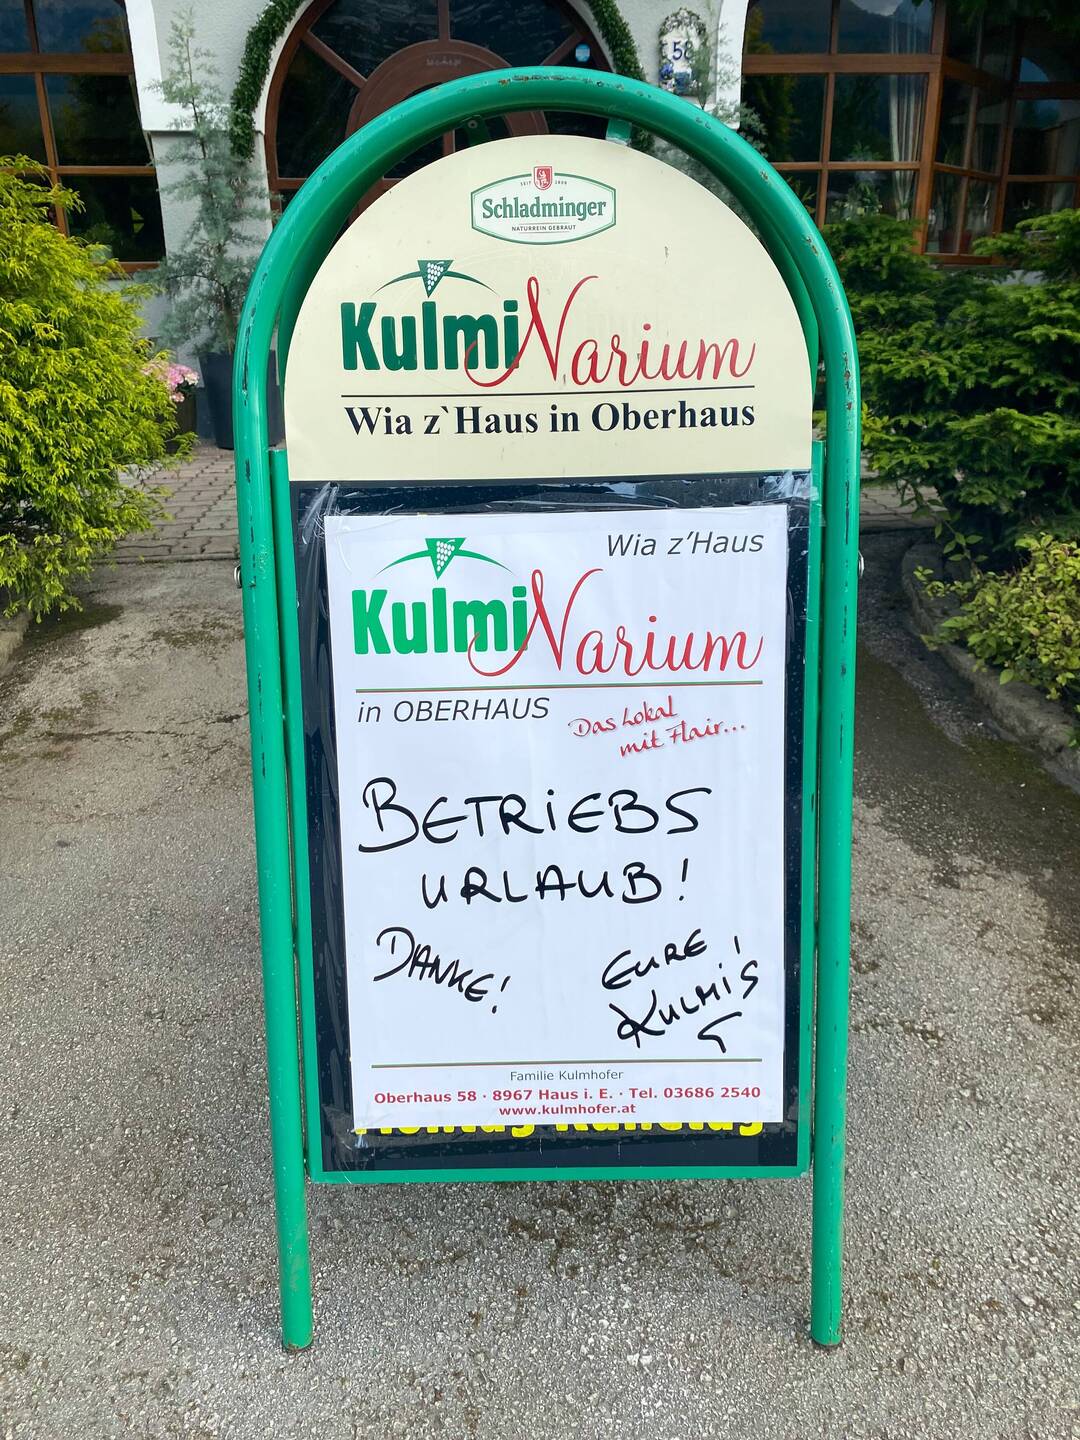 58
SEIT 1909
Schladminger
NATURREIN GEBRAUT
KulmiNarium
Wia z`Haus in Oberhaus
Wia z'Haus
KulmiNarium
in OBERHAUS
Das Lokal
mit Flair...
BETRiEBS
URLAUB!
DANKE!
EURE
KULMi'S
Familie Kulmhofer
Oberhaus 58 · 8967 Haus i. E. · Tel. 03686 2540
www.kulmhofer.at
Montag Ruhetag